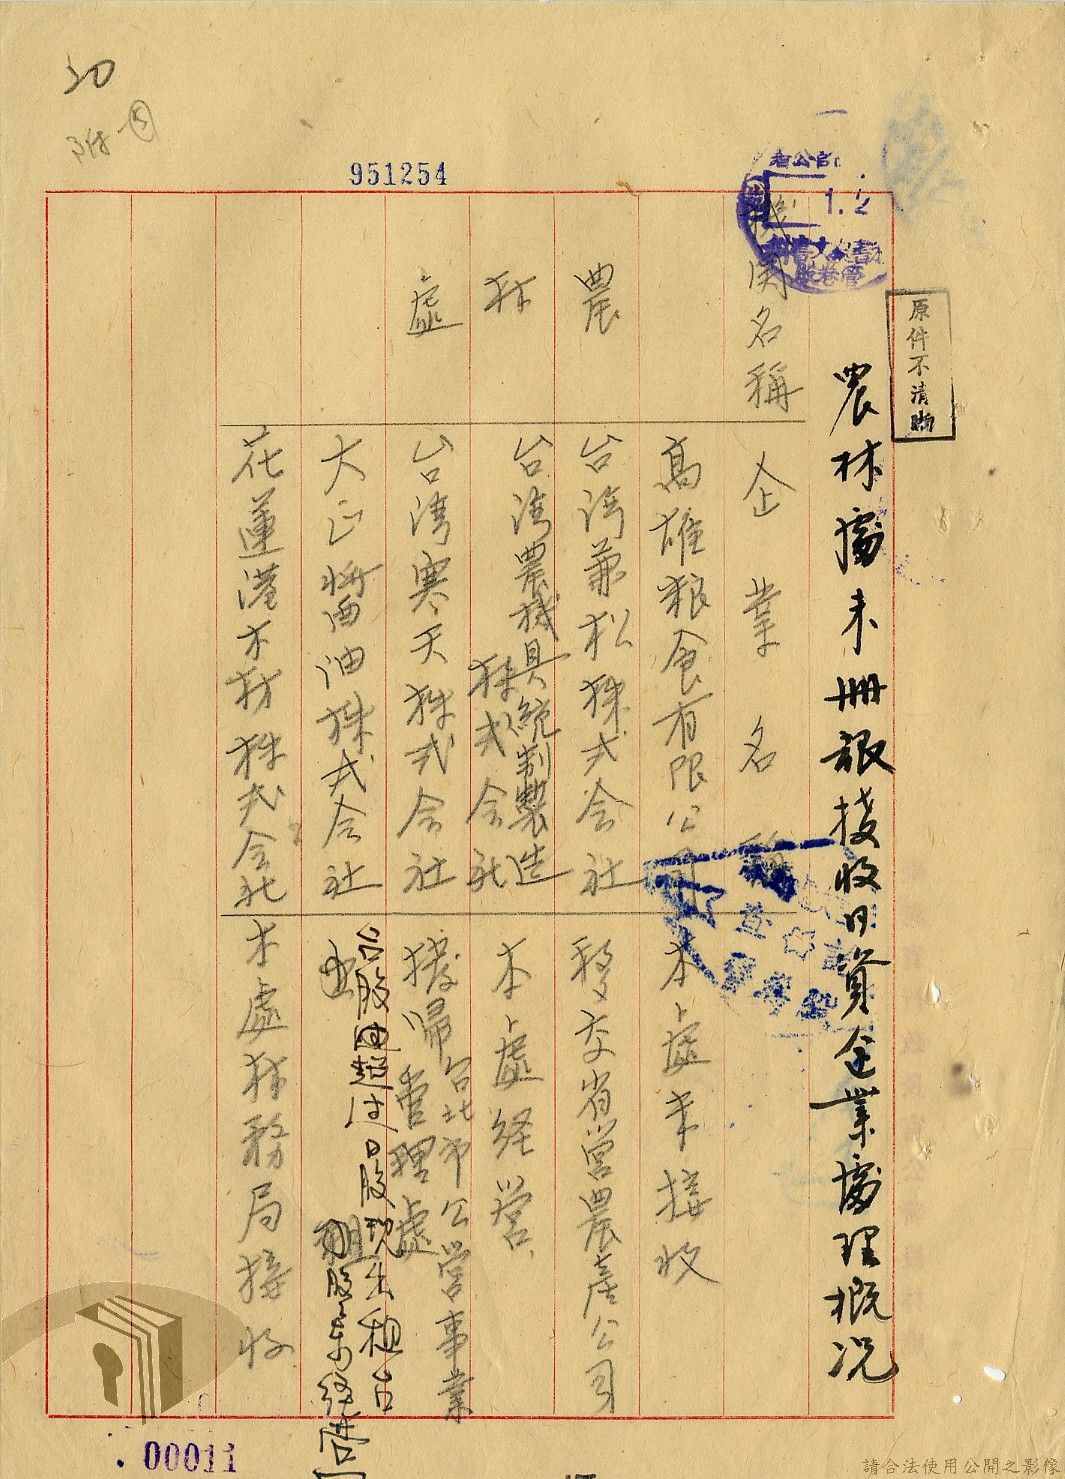 951254
00011
原件不清晰
農林處未冊報接收日資企業處理概況
機関名稱
企業名稱
農林處
高雄粮食有限公司
本處未接收
台湾兼松株式会社
移交省営農産公司
台湾農機具統制製造株式会社
本處经営
台湾寒天株式会社
撥帰台北市公営事業管理處
大正醬油株式会社
台股超过日股現出租台股東经営
花蓮港木材株式会社
本處林務局接收
請合法使用公開之影像